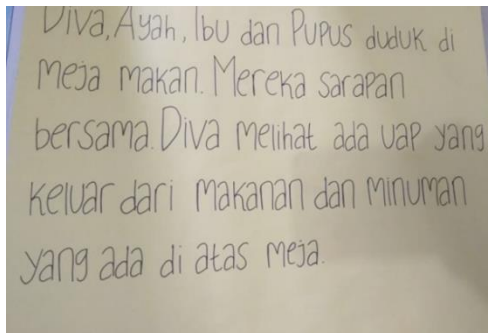 Diva, Ayah, Ibu dan Pupus duduk di
meja makan. Mereka sarapan
bersama. Diva melihat ada uap yang
keluar dari makanan dan minuman
yang ada di atas meja.